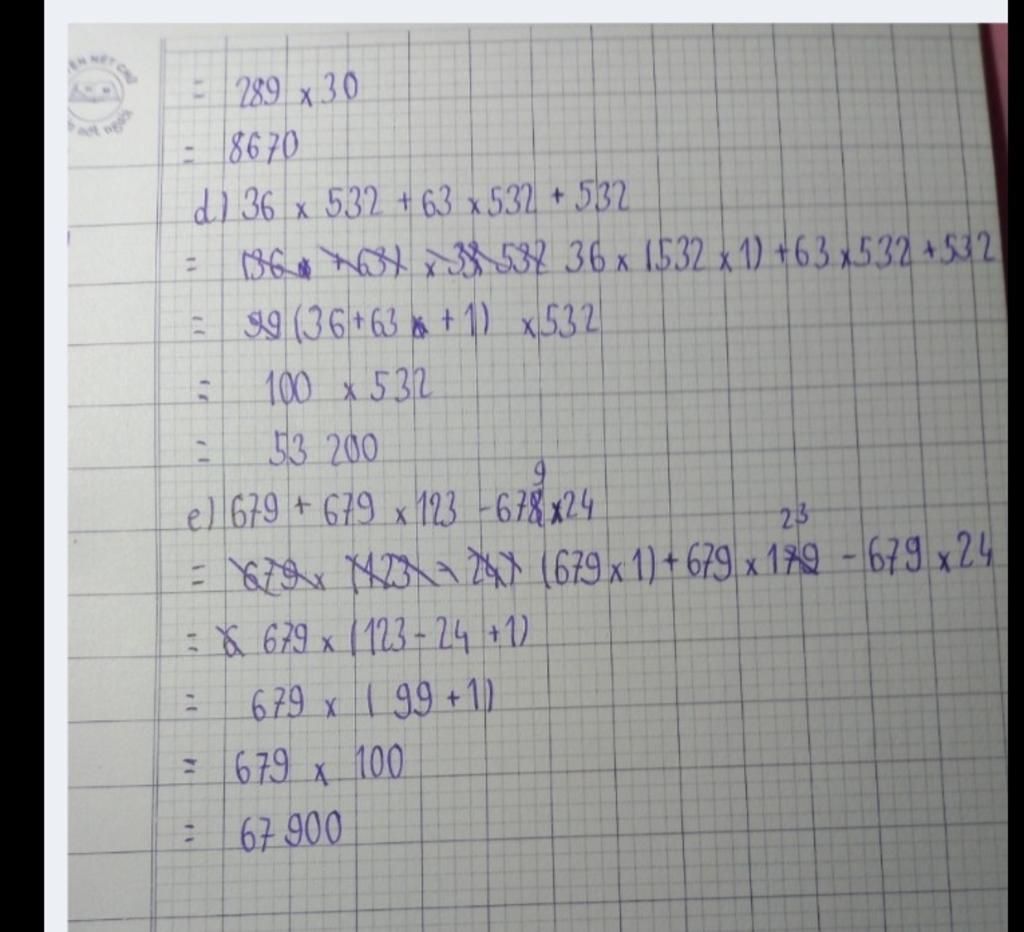 = 289 x 30
= 8670
d) 36 x 532 + 63 x 532 + 532
= 36 x (532 x 1) + 63 x 532 + 532
= (36 + 63 + 1) x 532
= 100 x 532
= 53 200
e) 679 + 679 x 123 - 679 x 24
= (679 x 1) + 679 x 123 - 679 x 24
= 679 x (123 - 24 + 1)
= 679 x (99 + 1)
= 679 x 100
= 67 900